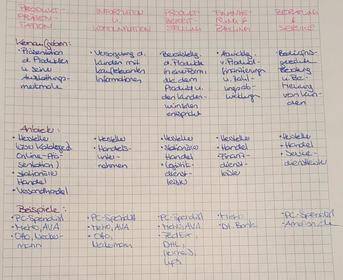 PRODUKT-
PRÄSEN-
TATION
INFORMATION
U.
KOMMUNIKATION
PRODUKT-
BEREIT-
STELLUNG
FINANZIE-
RUNG &
ZAHLUNG
BERATUNG
&
SERVICE
Kernaufgaben:
• Präsentation
d. Produkte
u. seine
Ausstattungs-
merkmale
• Versorgung d.
Kunden mit
kaufrelevanten
Informationen
• Bereitstellung
d. Produkte
in einer Form,
die dem
Produkt u.
den Kunden-
wünschen
entspricht
• Abwicklung
v. Produkt-
finanzierungen
u. Zahl-
ungsab-
wicklungen
• Bedürfnis-
gerechte
Beratung
u. Be-
treuung
von Kun-
den
Anbieter:
• Hersteller
Online-Prä-
sentation)
• Stationärer
Handel
• Versandhandel
• Hersteller
• Handels-
unter-
nehmen
• Hersteller
• Stationärer
Handel
• Logistik-
dienst-
leister
• Hersteller
• Handel
• Finanz-
dienst-
leister
• Hersteller
• Handel
• Service-
dienstleister
Beispiele:
• PC-Spezialist
• Metro, AVA
• Otto, Necker-
mann
• PC-Spezialist
• Metro, AVA
• Otto,
Neckermann
• PC-Spezialist
• Metro, AVA
• FedEx
DHL,
Hermes,
UPS
• Metro
• Dt. Bank
• PC-Spezialist